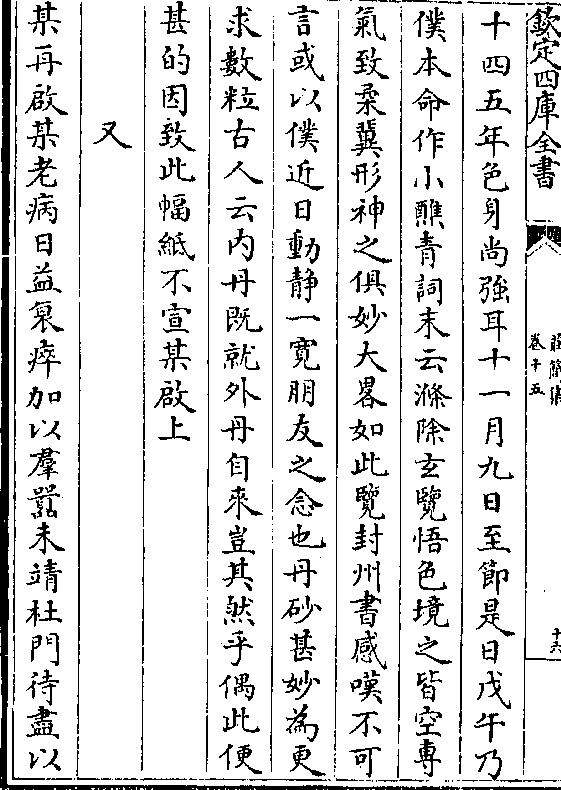 欽定四庫全書
卷十五
十六
十四五年色身尚強耳十一月九日至節是日戊午乃
僕本命作小醮青詞末云滌除玄覽悟色境之皆空專
氣致柔冀形神之俱妙大畧如此覽封州書感嘆不可
言或以僕近日動静一寛朋友之念也丹砂甚妙為更
求數粒古人云内丹既就外丹自來豈其然乎偶此便
甚的因致此幅紙不宣某啟上
又
某再啟某老病日益衰瘁加以羣嚚未靖杜門待盡以